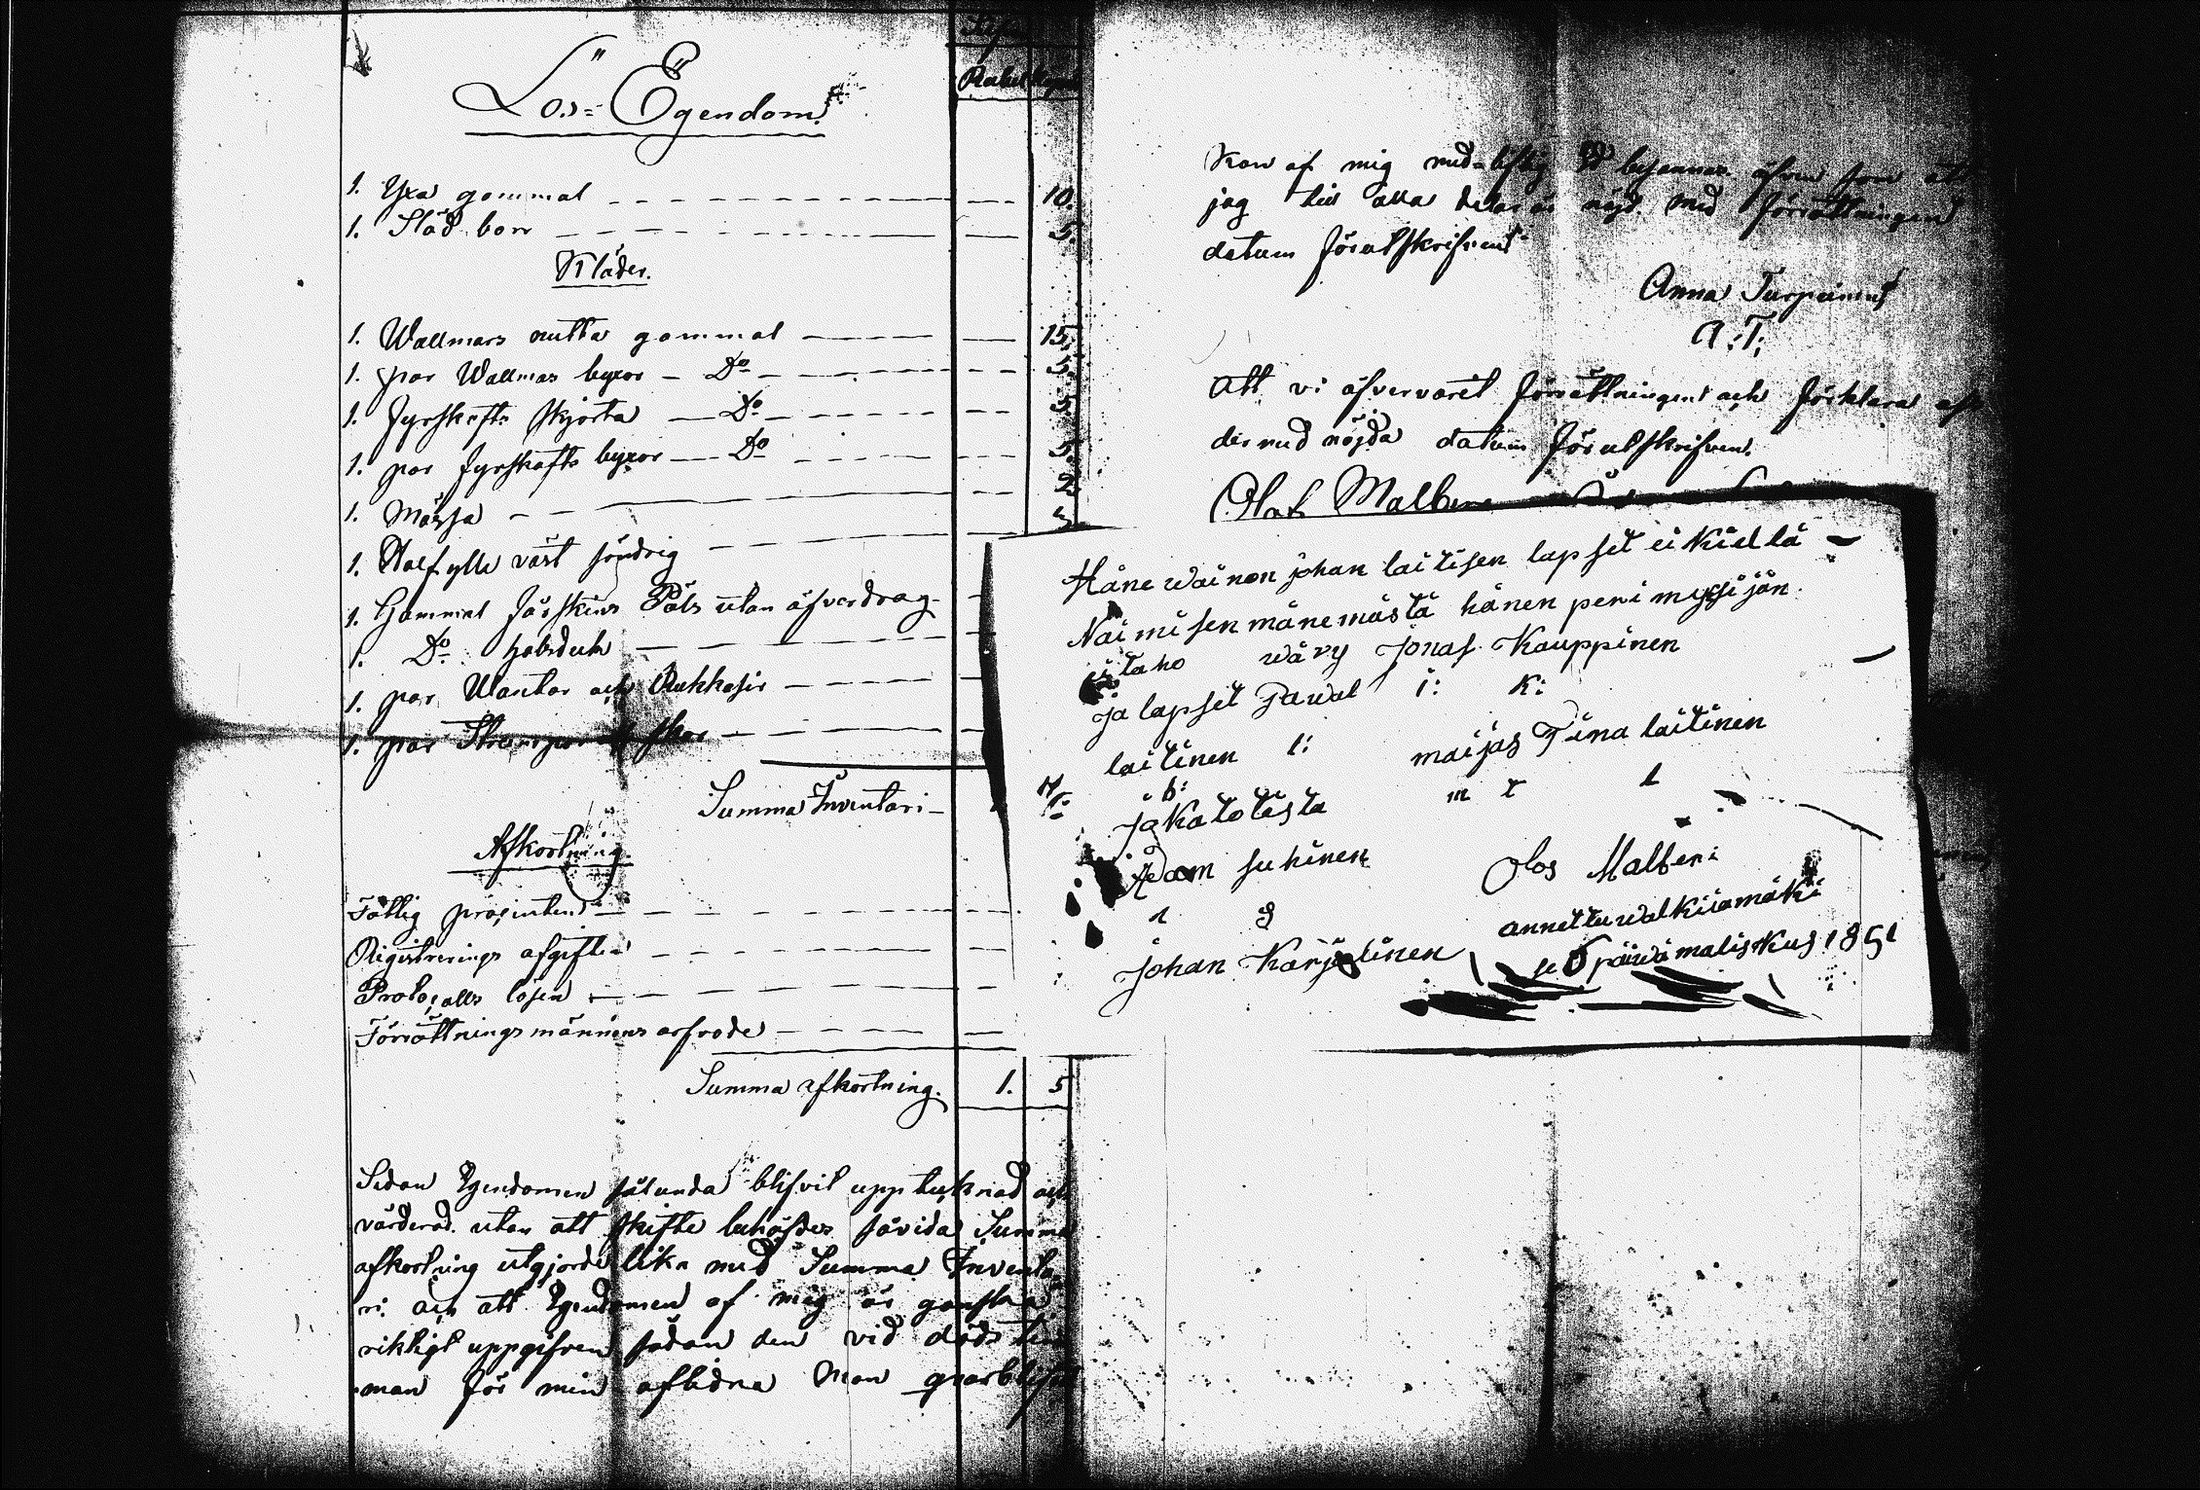 Lös=Egendom.
Rubel Kopek
1. Yxa gammal 10.
1. Städ borr 5.
Kläder.
1. Wallmars mutta gammal 15.
1. par Wallmas byxor Do 5.
1. fyrskafts skjorta Do 5.
1. par fyrskafts byxor Do 5.
1. Mössa 2.
1. Halfylle väst söndrig
1. Gammal fårskins Päls utan öfverdrag
1. Do halsduk
1. par Wantar och Rukkasir
1. par Strumpor skor
Summa Inventari
Afkortning.
Fattig procenten
Registrerings afgiften
Protocolls lösen
Förrättningsmännens arfvode
Summa afkortning. 1. 5
Sedan Egendomen sålunda blifvit upptecknad och
värderad utan att skifte behöfdes såvida Summa
afkortning utgjorde lika med Summa Inventa
ri. och att Egendomen af mig är ganska
riktigt uppgifven sådan den vid döds tim
man för min aflidna Man qvarblifvit
Kan af mig med beedjannas äfven som att
jag till alla delar är nöjd med förrättningen
datum förutskrifvent
Anna Turpeinen
A. T.
Att vi öfvervarit förrättningen och förklara oss
dermed nöjda datum förutskrifven.
Olof Malben
Häne wainon johan laitisen lapset ei kiellä
Naimisen mänemästä hänen perimysijän
itaho wävy jonas Kauppinen
ja lapset pawal i: K:
laitinen l: maijas Tiina laitinen
m t l
ja Katotesta
Adam suhinen Olos Malben
a s annettu walkiiamäki
johan Karjalinen se 6 päivä maliskus 1851